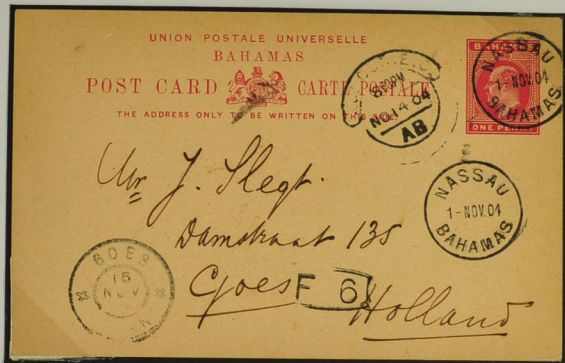 UNION POSTALE UNIVERSELLE
BAHAMAS
POST CARD CARTE POSTALE
THE ADDRESS ONLY TO BE WRITTEN ON THIS SIDE
BAHAMAS
ONE PENNY
NASSAU
1-NOV.04
BAHAMAS
NO 14 04
AB
NASSAU
1-NOV.04
BAHAMAS
Mr J. Slegt.
Damstraat 135
Goes
Holland
F 6
GOES
15
NOV